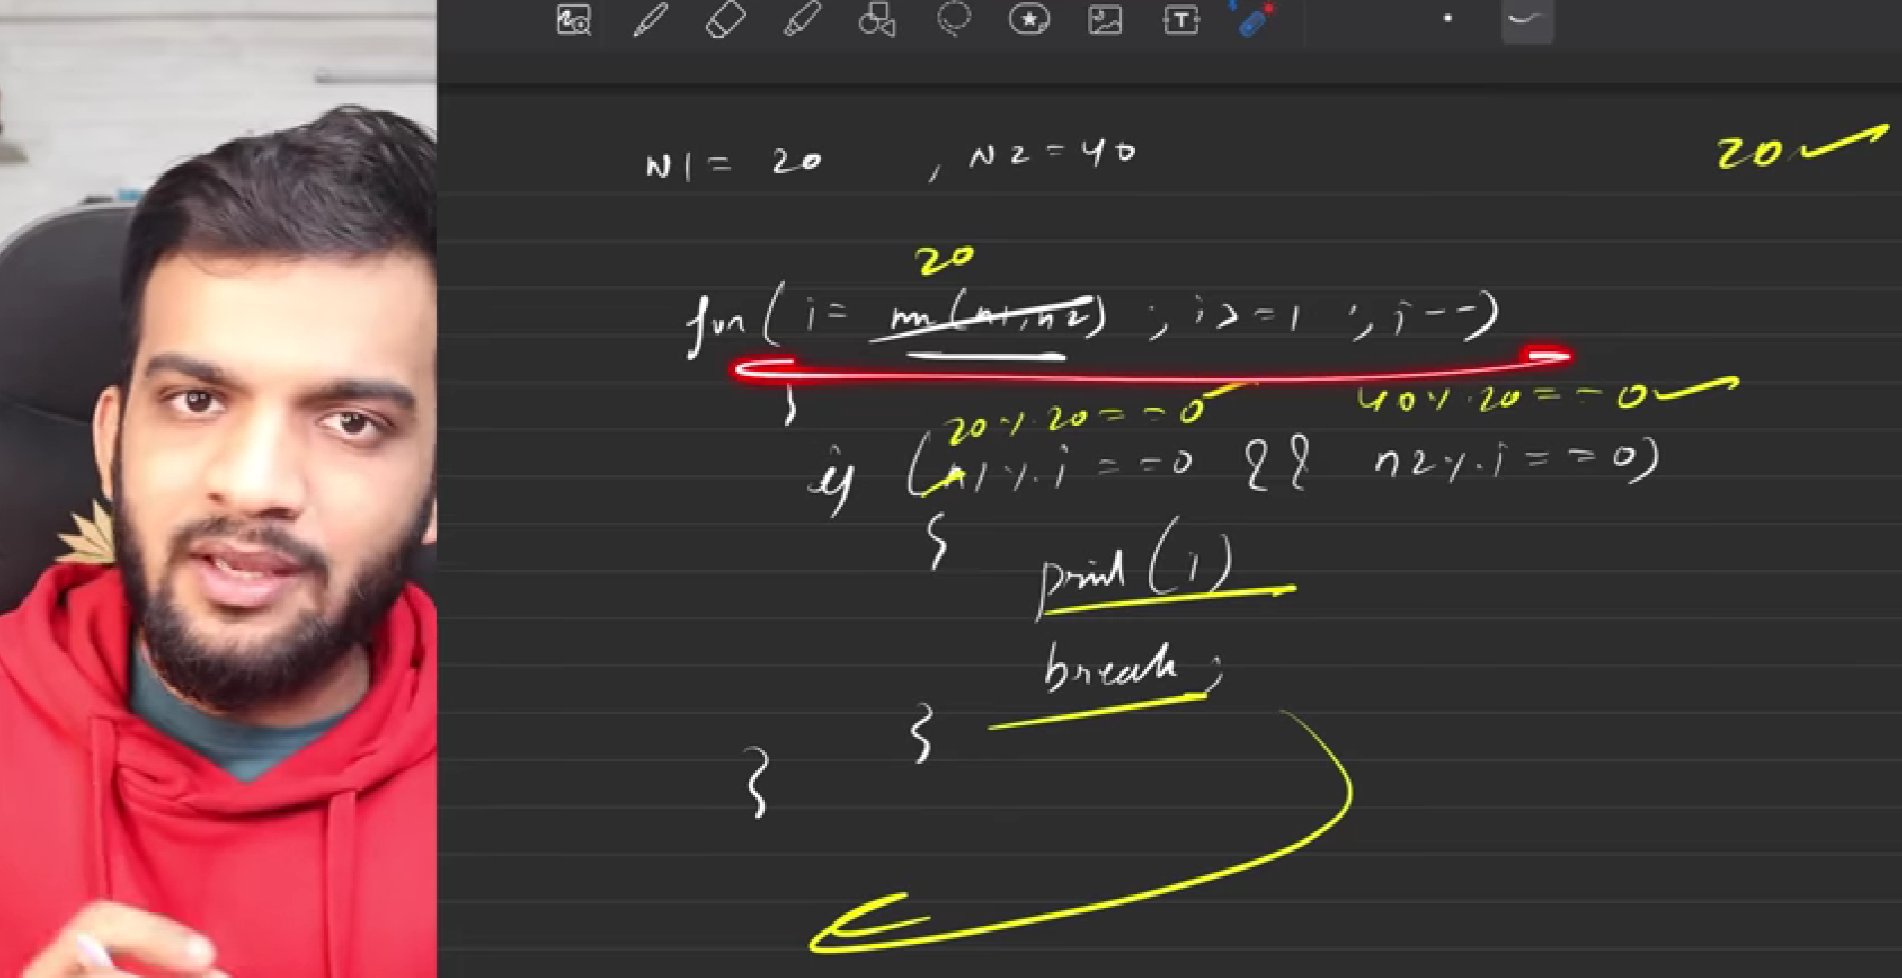 N1 = 20 , N2 = 40
20
20
for ( i = min(n1,n2) ; i >= 1 ; i-- )
{
20 % 20 == 0 40 % 20 == 0
if ( n1 % i == 0 && n2 % i == 0)
{
print (i)
break ;
}
}